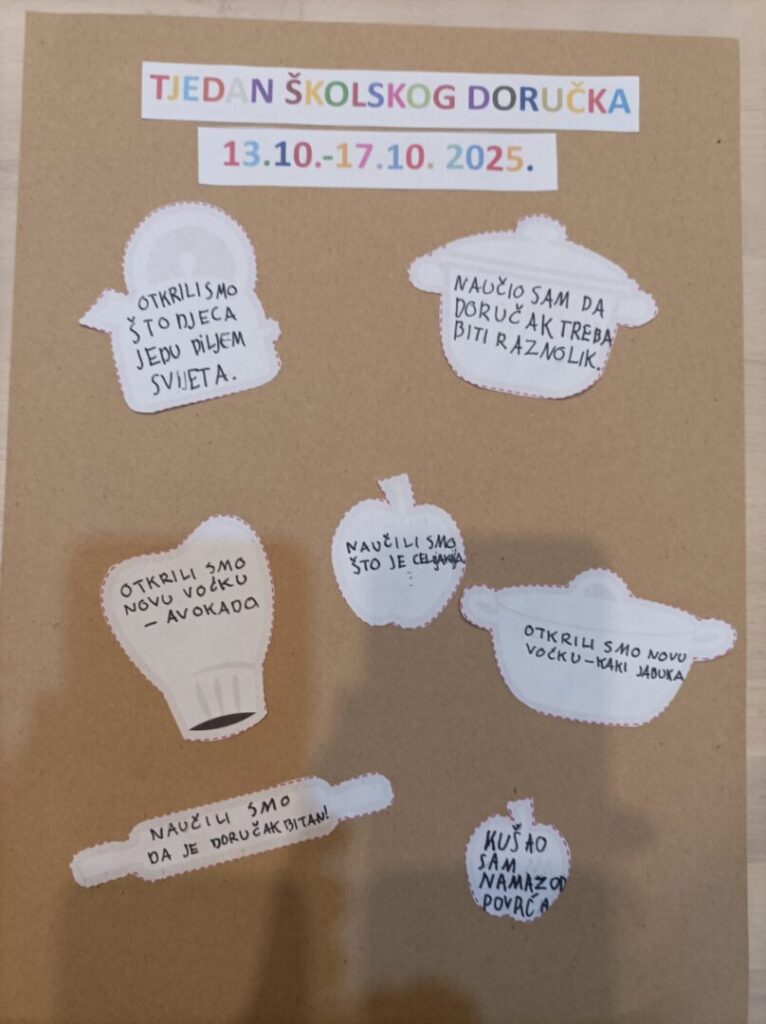 TJEDAN ŠKOLSKOG DORUČKA
13.10.-17.10. 2025.
OTKRILI SMO
ŠTO DJECA
JEDU DILJEM
SVIJETA.
NAUČIO SAM DA
DORUČAK TREBA
BITI RAZNOLIK.
OTKRILI SMO
NOVU VOĆKU
- AVOKADO
NAUČILI SMO
ŠTO JE CELIJAKIJA
OTKRILI SMO NOVU
VOĆKU-KAKI JABUKA
NAUČILI SMO
DA JE DORUČAK BITAN!
KUŠAO
SAM
NAMAZ OD
POVRĆA